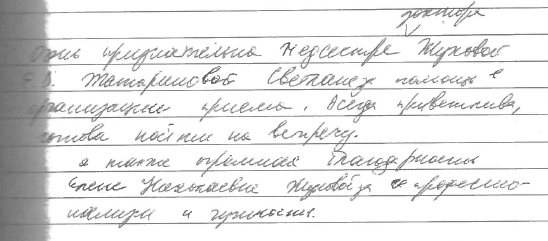 доктора
Очень признательна медсестре Жуковой
Е.В. Татариновой Светлане за помощь в
организации приема. Всегда приветлива,
готова пойти на встречу.
а также огромная благодарность
Елене Николаевне Жуковой за ее професио-
нализм и чуткость.